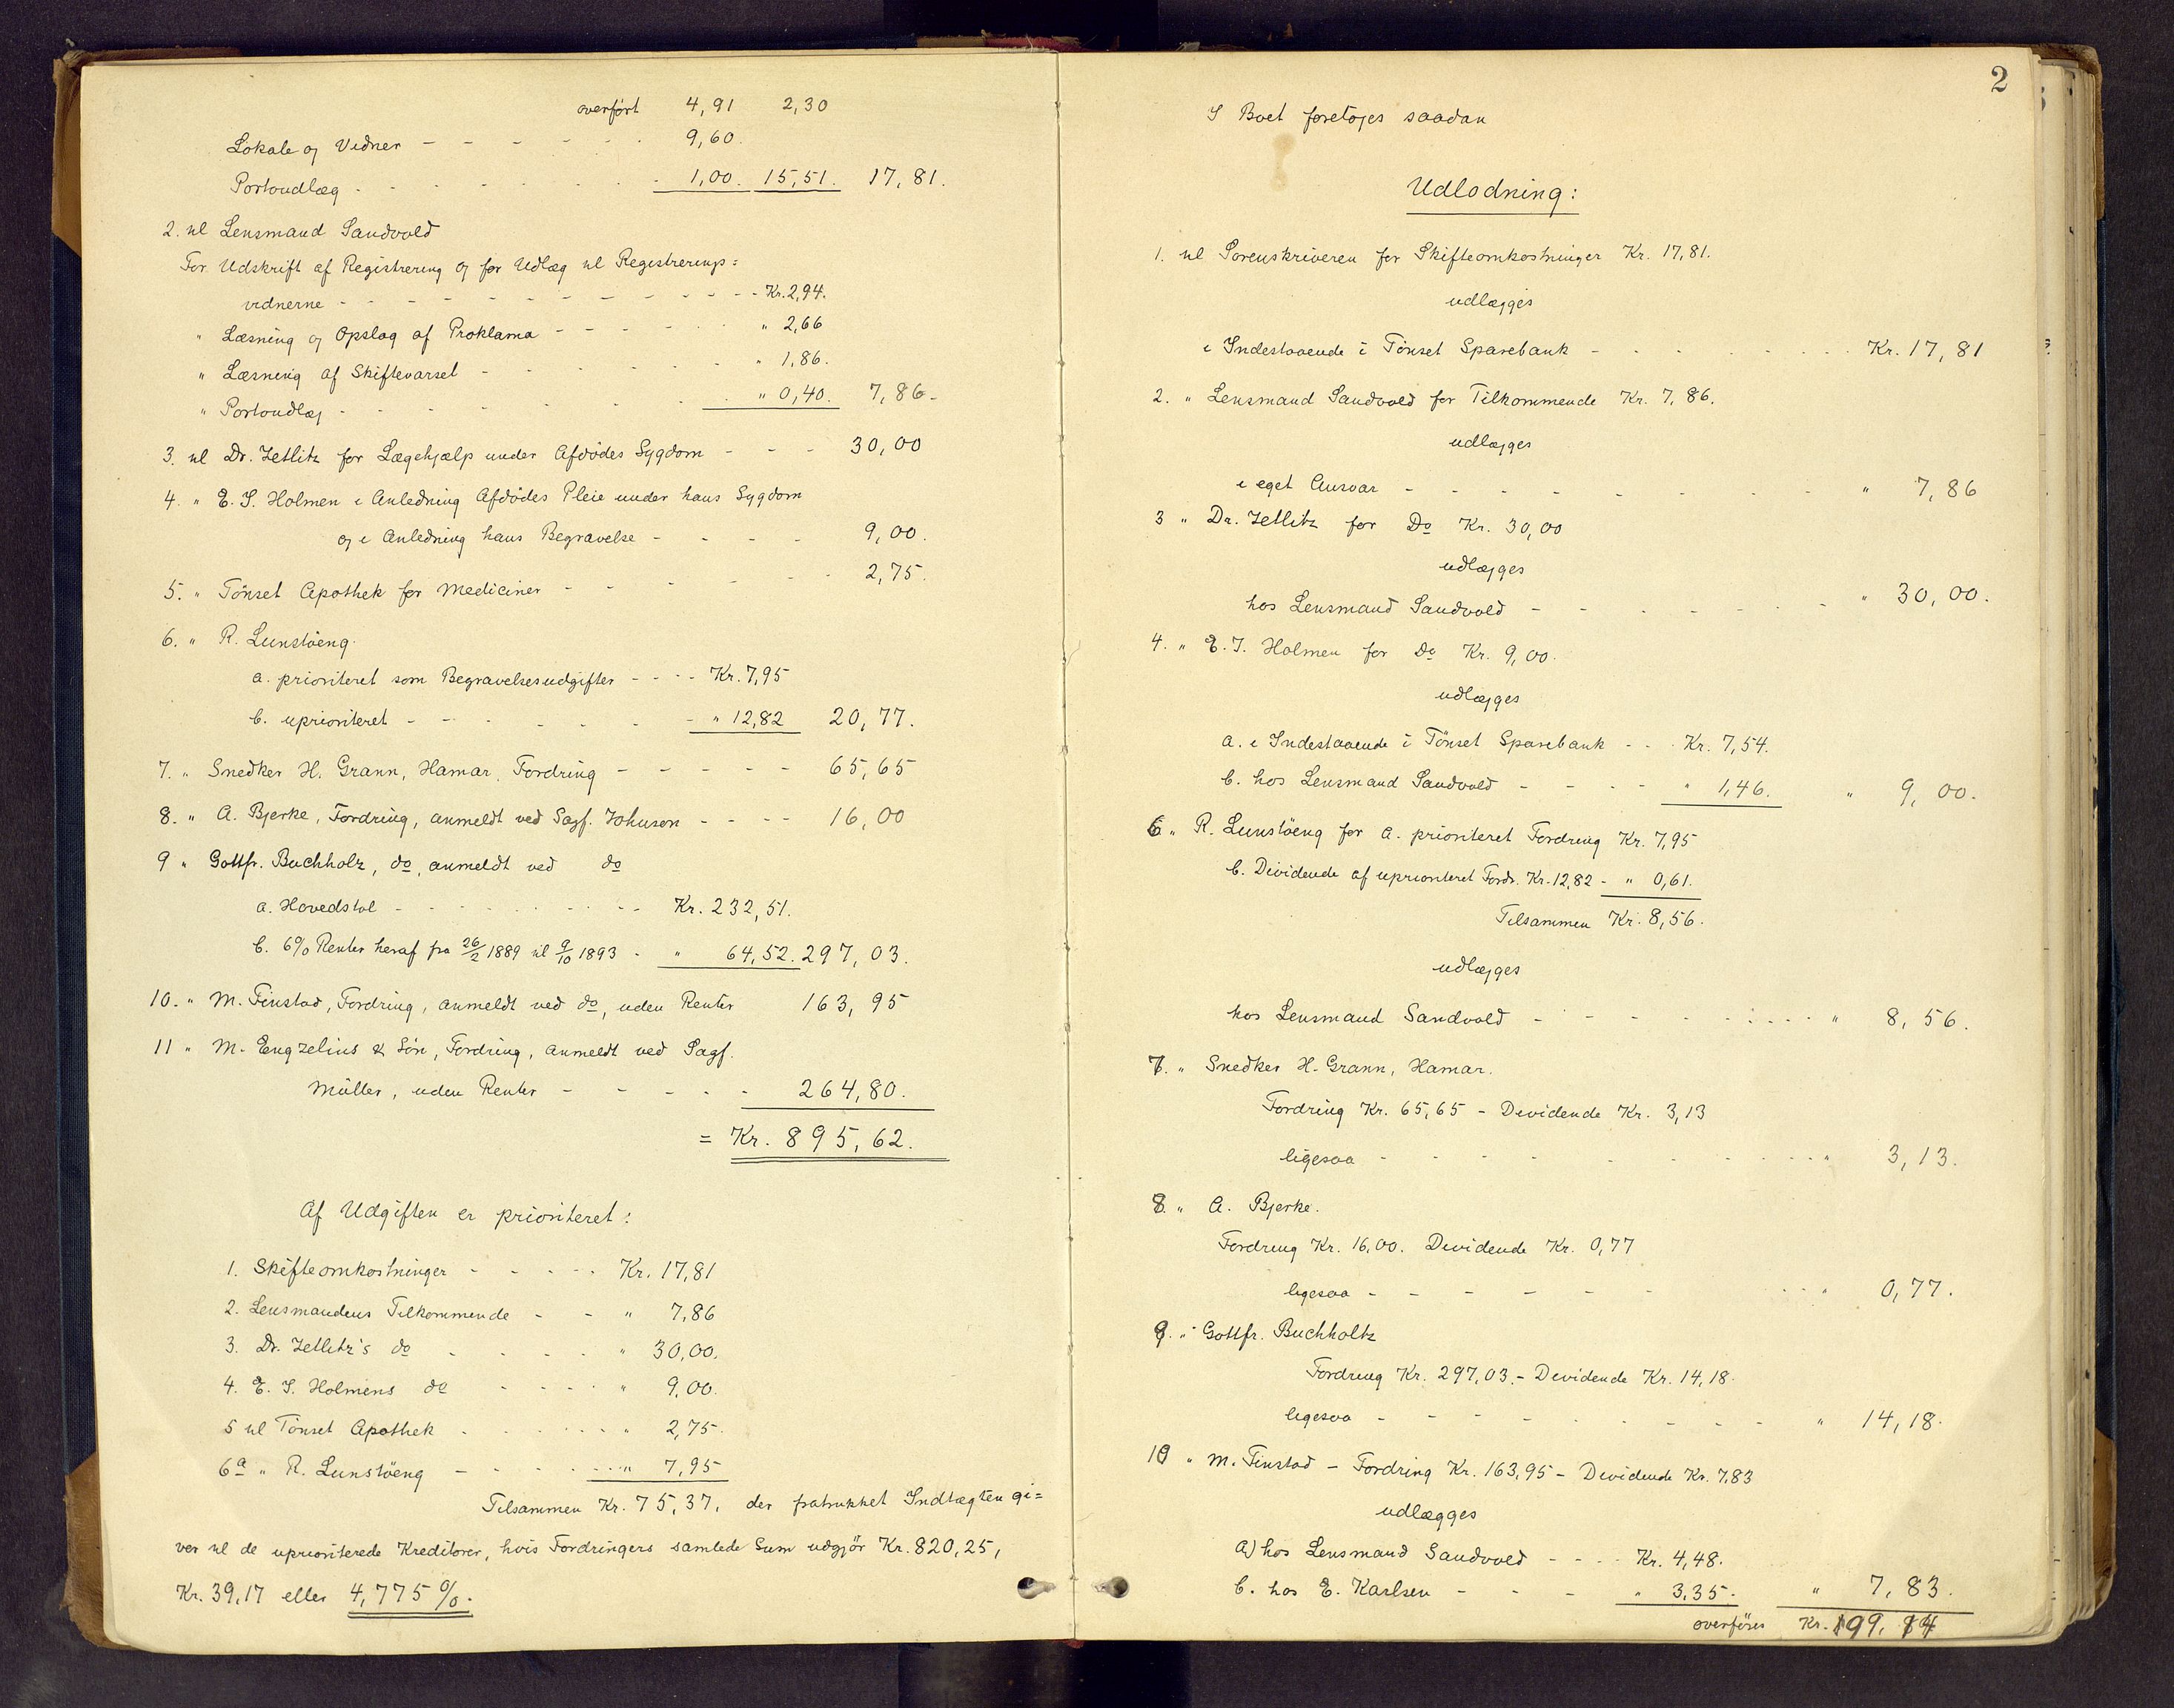 overført 4,91 2,30
Lokale og Vidner - - - - - - 9,60.
Portoudlæg - - - - - - - 1,00. 15,51. 17,81.
2. til Lensmand Sandvold
For Udskrift af Registrering og for Udlæg til Registrerings=
vidnerne - - - - - - - - - Kr. 2,94.
" Læsning og Opslag af Proklama - - - - - " 2,66
" Læsning af Skiftevarsel - - - - - - " 1,86.
" Portoudlæg - - - - - - - " 0,40. 7,86.
3. til Dr. Zetlitz for Lægehjælp under Afdødes Sygdom - - - 30,00
4. " E. I. Holmen i Anledning Afdødes Pleie under hans Sygdom
og i Anledning hans Begravelse - - - - 9,00.
5. " Tönset Apothek for Mediciner - - - - - 2,75.
6. " R. Lunstöeng.
a. prioriteret som Begravelsesudgifter - - - - Kr. 7,95
b. uprioriteret - - - - - - - " 12,82 20,77.
7. " Snedker H. Grann, Hamar, Fordring - - - - - 65,65
8. " A. Bjerke, Fordring, anmeldt ved Sagf. Johnsen - - - - 16,00
9 " Gottfr. Buchholz, do, anmeldt ved do
a. Hovedstol - - - - - - - - Kr. 232,51.
b. 6% Renter heraf fra 26/2 1889 til 9/10 1893 - " 64,52. 297,03.
10. " M. Finstad, Fordring, anmeldt ved do, uden Renter 163,95
11 " M. Engzelius & Sön, Fordring, anmeldt ved Sagf.
Müller, uden Renter - - - - - 264,80.
= Kr. 895,62.
Af Udgiften er prioriteret:
1. Skifteomkostninger - - - - - Kr. 17,81
2. Lensmandens Tilkommende - - " 7,86
3. Dr. Zetlitz's do - - - - " 30,00.
4. E. I. Holmens do - - - - " 9,00.
5 til Tönset Apothek - - - - - " 2,75.
6a " R. Lunstöeng - - - - - " 7,95
Tilsammen Kr. 75,37, der fratrukket Indtægten gi=
ver til de uprioriterede Kreditorer, hvis Fordringers samlede Sum udgjør Kr. 820,25,
Kr. 39,17 eller 4,775%.
2
I Boet foretages saadan
Udlodning:
1. til Sorenskriveren for Skifteomkostninger Kr. 17,81.
udlægges
i Indestaaende i Tönset Sparebank - - - - - - Kr. 17,81
2. " Lensmand Sandvold for Tilkommende Kr. 7,86.
udlægges
i eget Ansvar - - - - - - - - - " 7,86
3 " Dr. Zetlitz for Do Kr. 30,00
udlægges
hos Lensmand Sandvold - - - - - - - " 30,00.
4. " E. I. Holmen for Do Kr. 9,00.
udlægges
a. i Indestaaende i Tönset Sparebank - - - Kr. 7,54.
b. hos Lensmand Sandvold - - - - " 1,46. " 9,00.
6 " R. Lunstöeng for a. prioriteret Fordring Kr. 7,95
b. Dividende af uprioriteret Fordr. Kr. 12,82 - " 0,61.
Tilsammen Kr. 8,56.
udlægges
hos Lensmand Sandvold - - - - - - - " 8,56.
7. " Snedker H. Grann, Hamar.
Fordring Kr. 65,65 - Dividende Kr. 3,13
ligesaa - - - - - - - - - " 3,13.
8. " A. Bjerke.
Fordring Kr. 16,00. Dividende Kr. 0,77
ligesaa - - - - - - - - " 0,77.
9. " Gottfr. Buchholtz
Fordring Kr. 297,03. - Dividende Kr. 14,18.
ligesaa - - - - - - - - - " 14,18.
10 " M. Finstad - Fordring Kr. 163,95 - Dividende Kr. 7,83
udlægges
a) hos Lensmand Sandvold - - - - Kr. 4,48.
b. hos E. Karlsen - - - " 3,35. " 7,83.
overføres Kr. 99,14